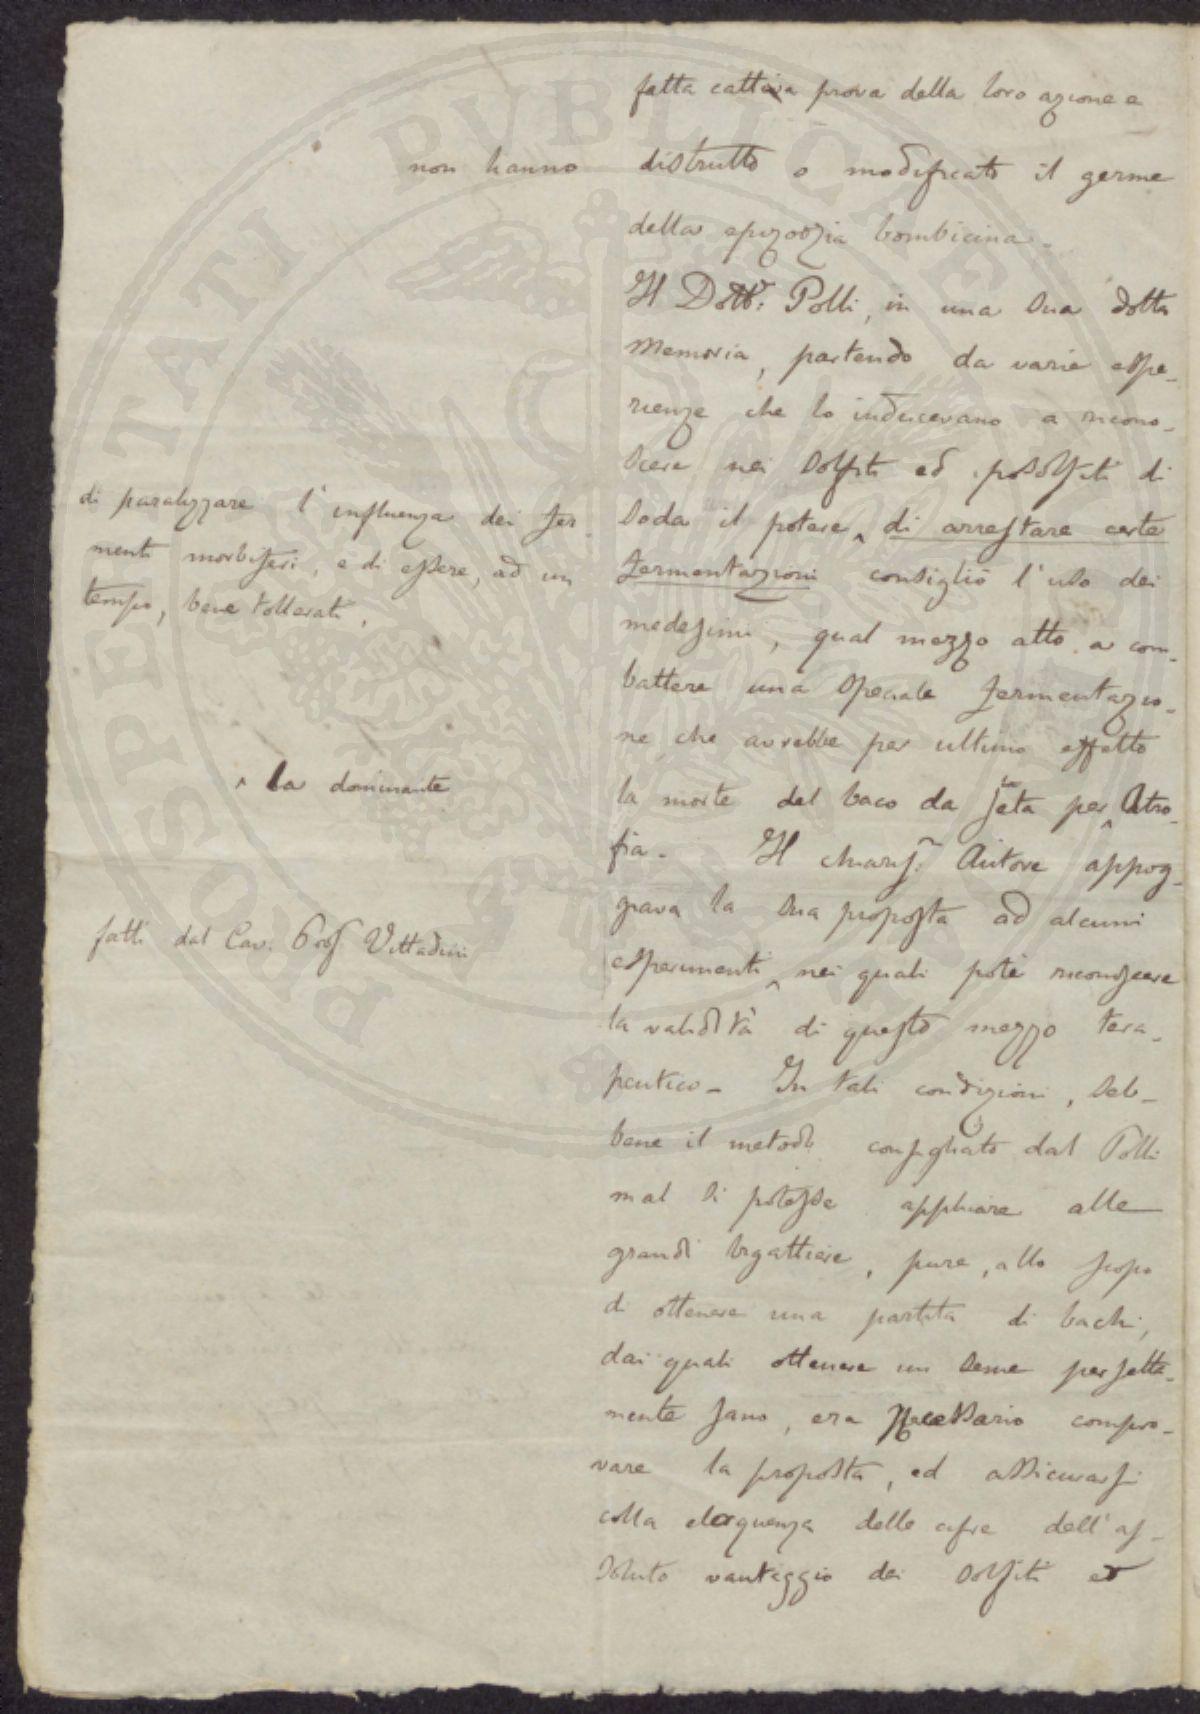 fatta cattiva prova della loro azione e
non hanno distrutto o modificato il germe
della epizoozia bombicina.
Il Dott.r Polli, in una sua dotta
memoria, partendo da varie espe-
rienze che lo inducevano a ricono-
scere nei solfiti ed iposolfiti di
soda il potere ^ di arrestare certe
di paralizzare l'influenza dei fer-
menti morbiferi, e di essere, ad un
tempo, bene tollerati,
fermentazioni consigliò l'uso dei
medesimi, qual mezzo atto a com-
battere una speciale fermentazio-
ne che avrebbe per ultimo effetto
la morte del baco da seta per ^ atro-
^ la dominante
fia. Il chiariss. Autore appog-
giava la sua proposta ad alcuni
fatti dal Cav. Prof Vittadini
esperimenti ^ nei quali potè riconoscere
la validità di questo mezzo tera-
peutico. In tali condizioni, seb-
bene il metodo consigliato dal Polli
mal si potesse applicare alle
grandi bigattiere, pure, allo scopo
di ottenere una partita di bachi,
dai quali ottenere un seme perfetta-
mente sano, era necessario compro-
vare la proposta, ed assicurarsi
colla eloquenza delle cifre dell'as-
soluto vantaggio dei solfiti ed
PROSPERITATI PVBLICAE